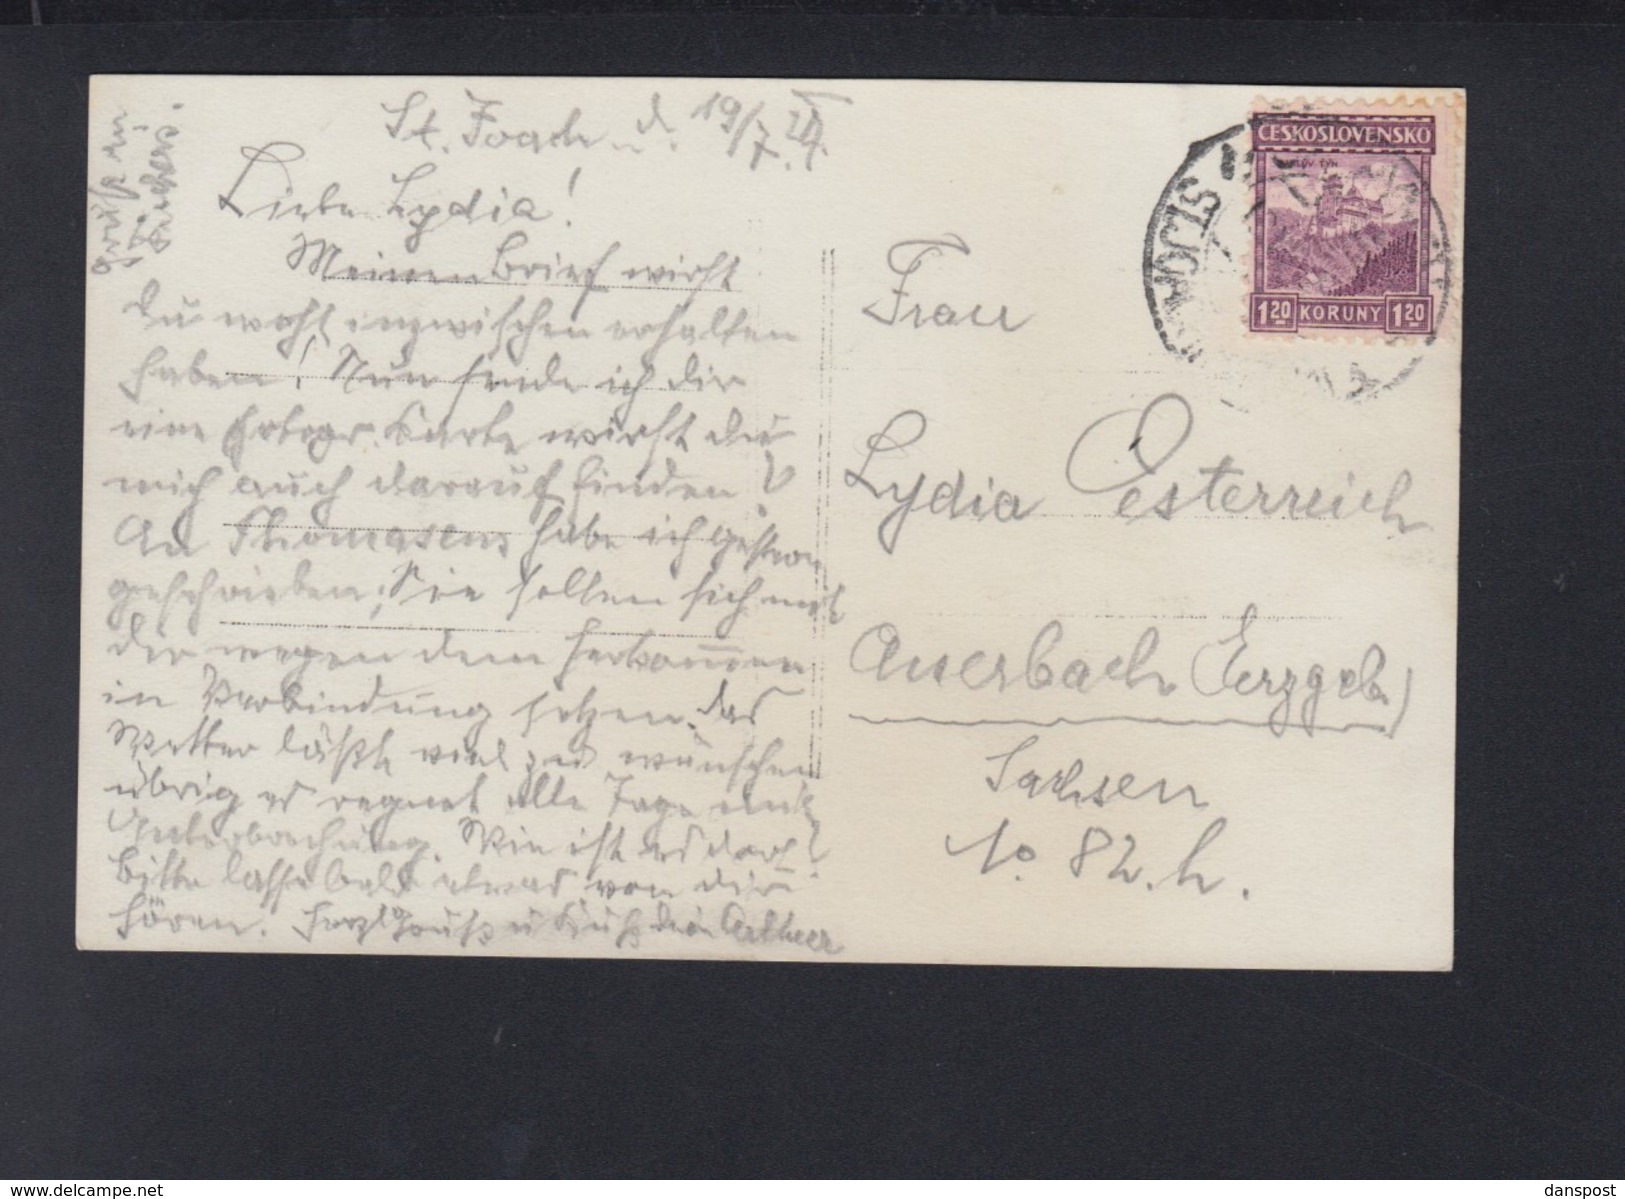 St. Joach. d. 19/7.
Liebe Lydia!
Meinen Brief wirst
du wohl inzwischen erhalten
haben! Nun sende ich dir
eine Fotogr. Karte wirst du
mich auch darauf finden?
An Thomasens habe ich gestern
geschrieben; Sie sollen sich mit
dir wegen dem herkommen
in Verbindung setzen. Das
Wetter läßt viel zu wünschen
übrig es regnet alle Tage mit
Unterbrechung. Wie ist es dort?
Bitte lasse bald etwas von dir
hören. Herzl Gruß u Kuß dein Arthur
Gruß an
CESKOSLOVENSKO
KARLOV TYN
120 KORUNY 120
ST. JOACH
Frau
Lydia Oesterreich
Auerbach Erzgeb)
Sachsen
No 82.h.
delcampe.net
danspost